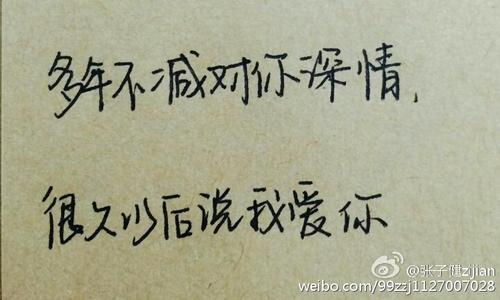 多年不减对你深情，
很久以后说我爱你
@张子健zijian
weibo.com/99zzj1127007028